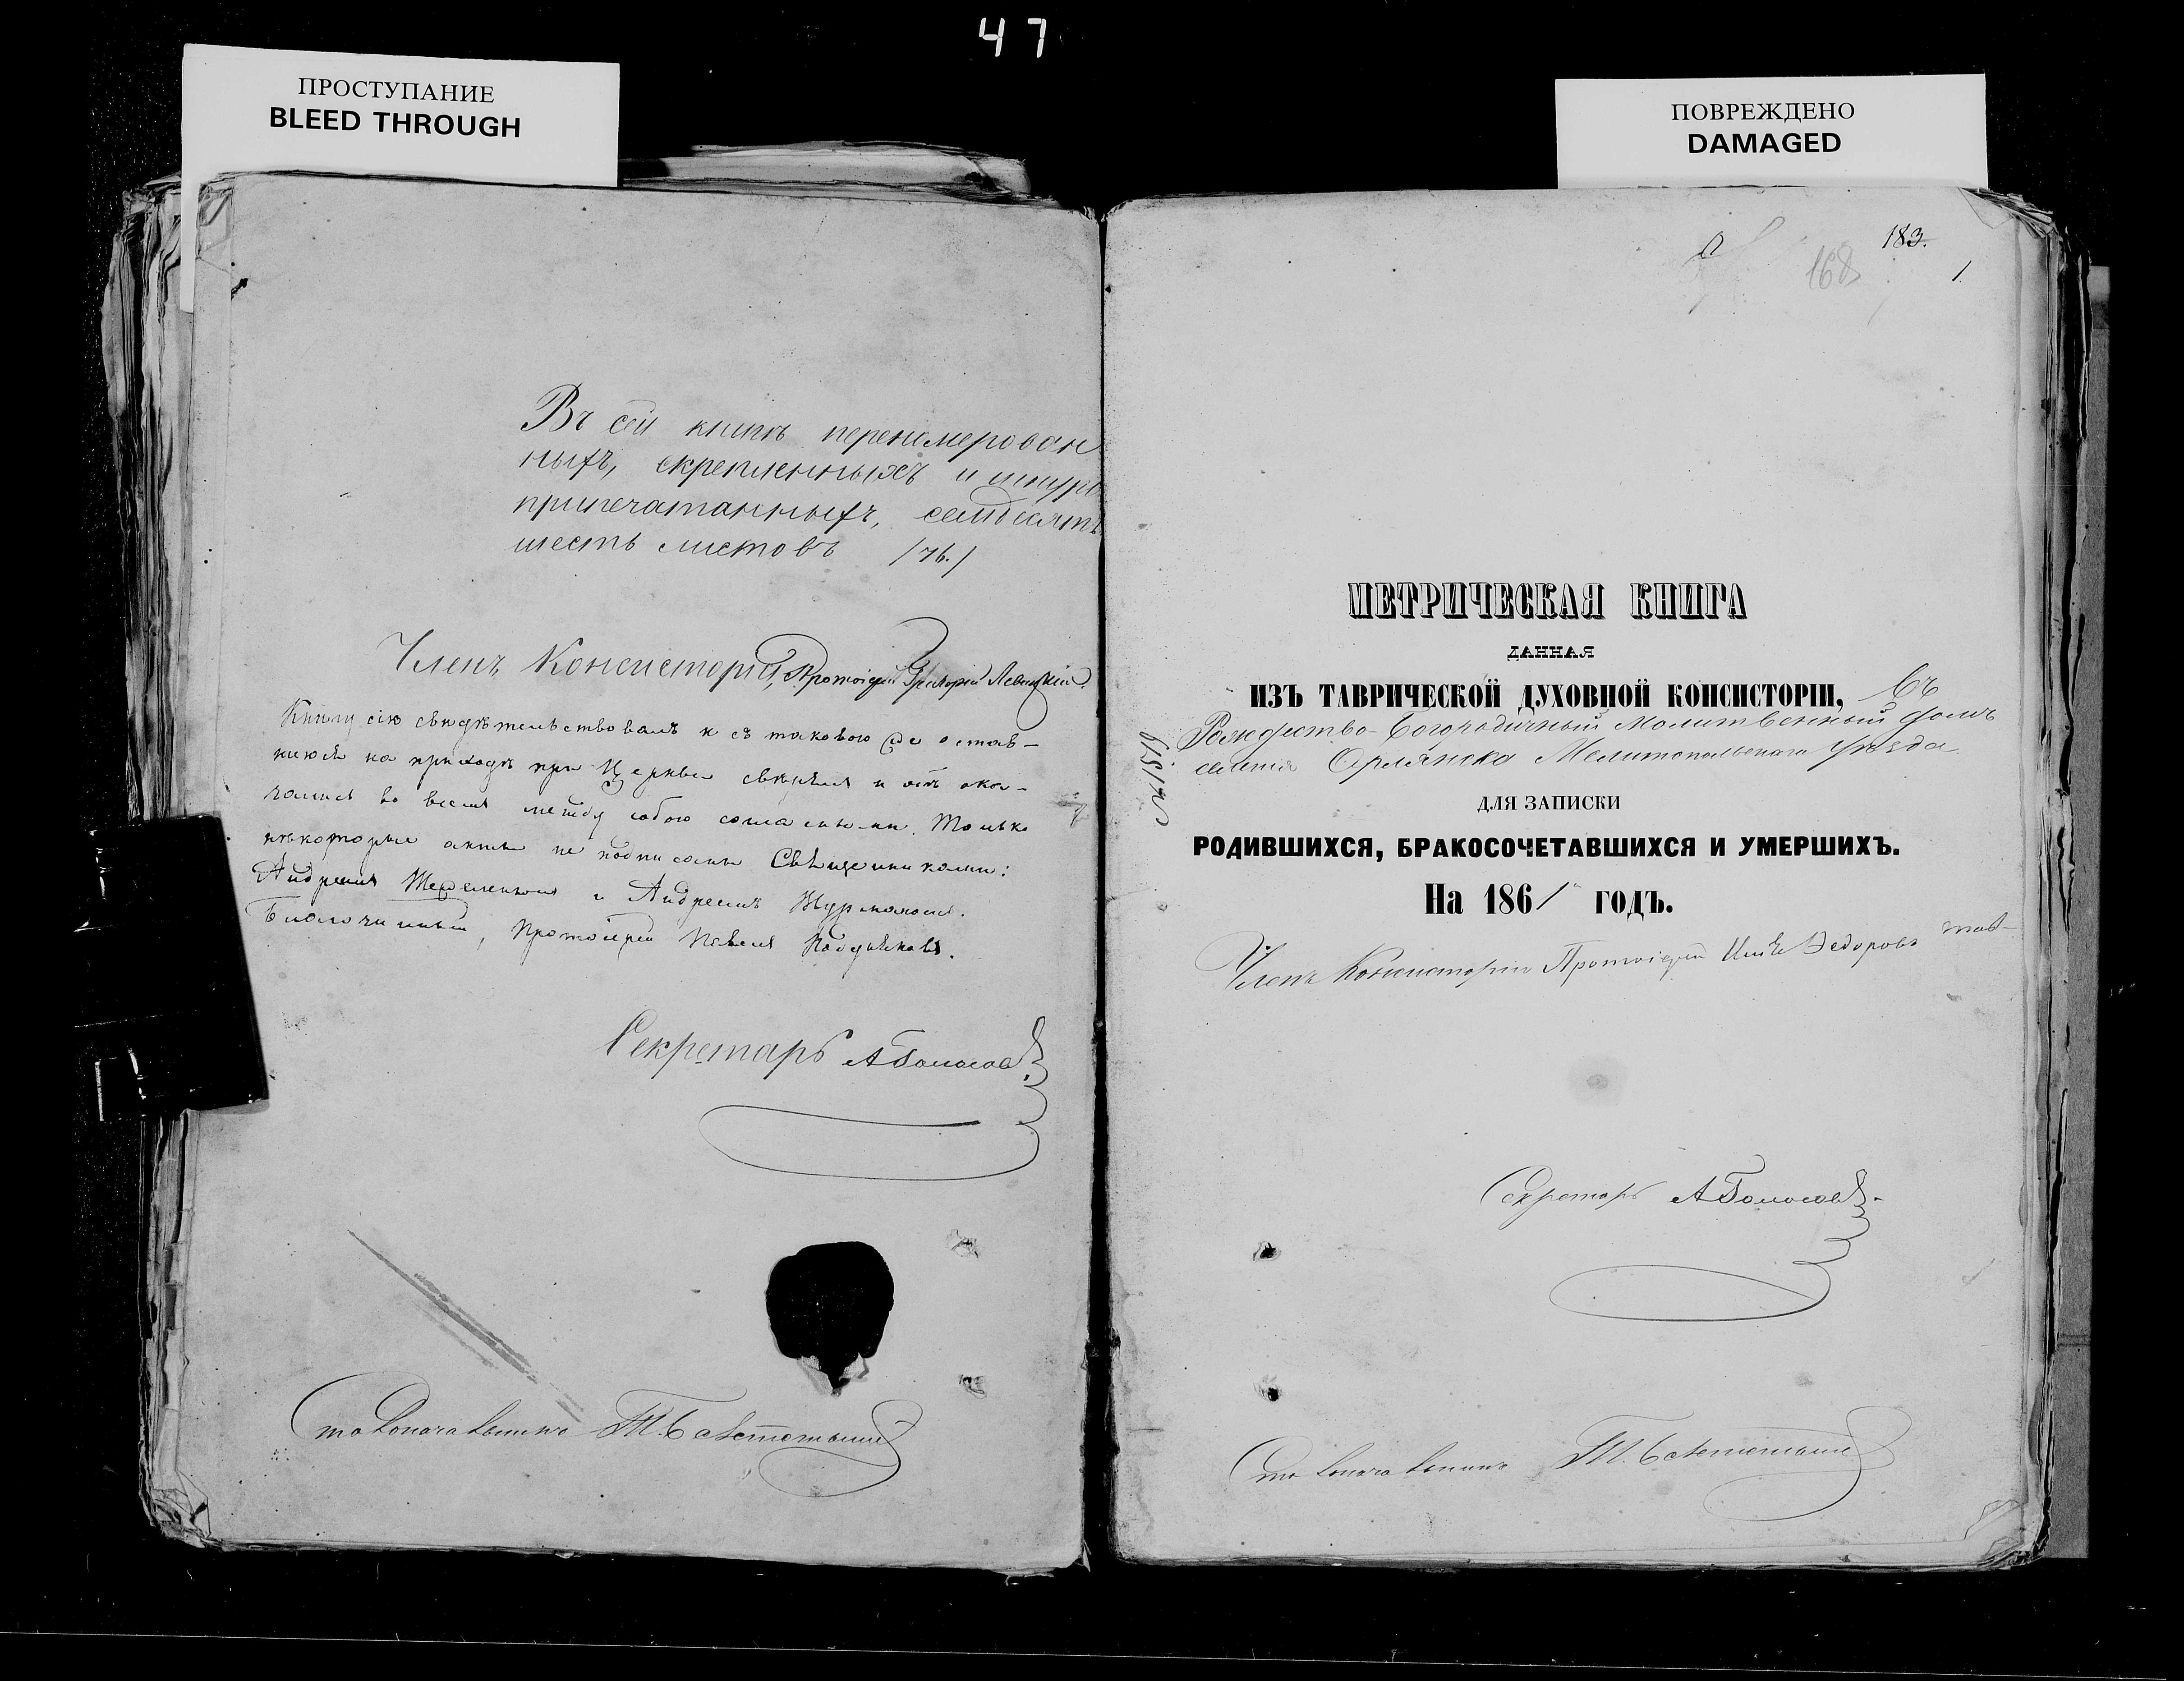 47
ПРОСТУПАНИЕ
BLEED THROUGH
Въ сей книгѣ перенумерован
ныхъ, скрепленныхъ и шнур
припечатанныхъ, семдесятъ
шесть листовъ /76./
Членъ Консисторіи, Протоіерей Григорій Левицкій.
Книгу сію свидѣтельствовалъ и съ таковою же остав-
на приходѣ при Церкви свѣрялъ и
во всемъ между собою согласными. Только
нѣкоторые акты не подписаны Священниками:
Андреемъ и Андреемъ
Благочинный, Протоіерей Павелъ
Секретарь А
Столоначальникъ
ПОВРЕЖДЕНО
DAMAGED
183.
168
1.
МЕТРИЧЕСКАЯ КНИГА
ДАННАЯ
ИЗЪ ТАВРИЧЕСКОЙ ДУХОВНОЙ КОНСИСТОРІИ, въ
Рождество-Богородичный Молитвенный домъ
селенія Орлянска Мелитопольскаго уѣзда
№ 1519
ДЛЯ ЗАПИСКИ
РОДИВШИХСЯ, БРАКОСОЧЕТАВШИХСЯ И УМЕРШИХЪ.
На 1861 ГОДЪ.
Членъ Консисторіи Протоіерей
Секретарь А
Столоначальникъ